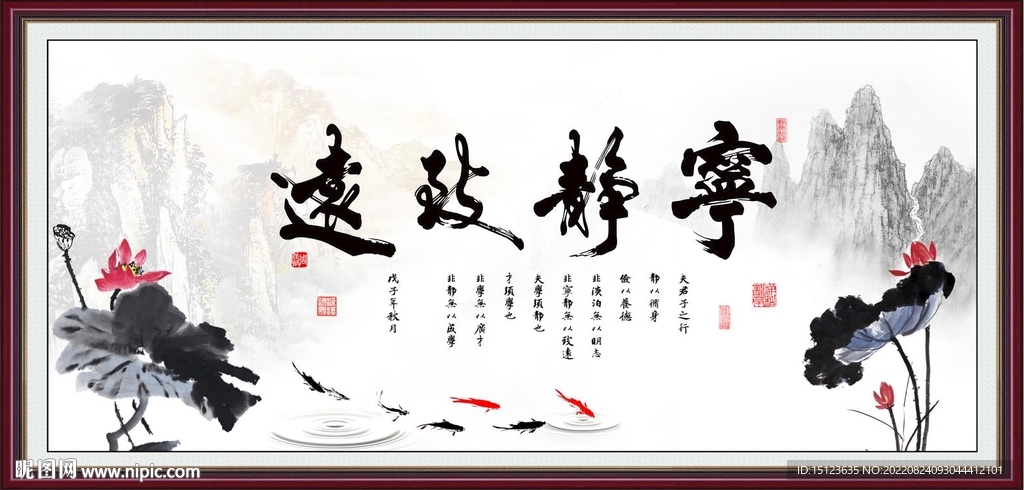 寧静致遠
夫君子之行
静以修身
儉以養德
非淡泊無以明志
非寧静無以致遠
夫學須静也
才須學也
非學無以廣才
非静無以成學
戊子年秋月
昵图网 www.nipic.com
ID:15123635 NO:20220824093044412101